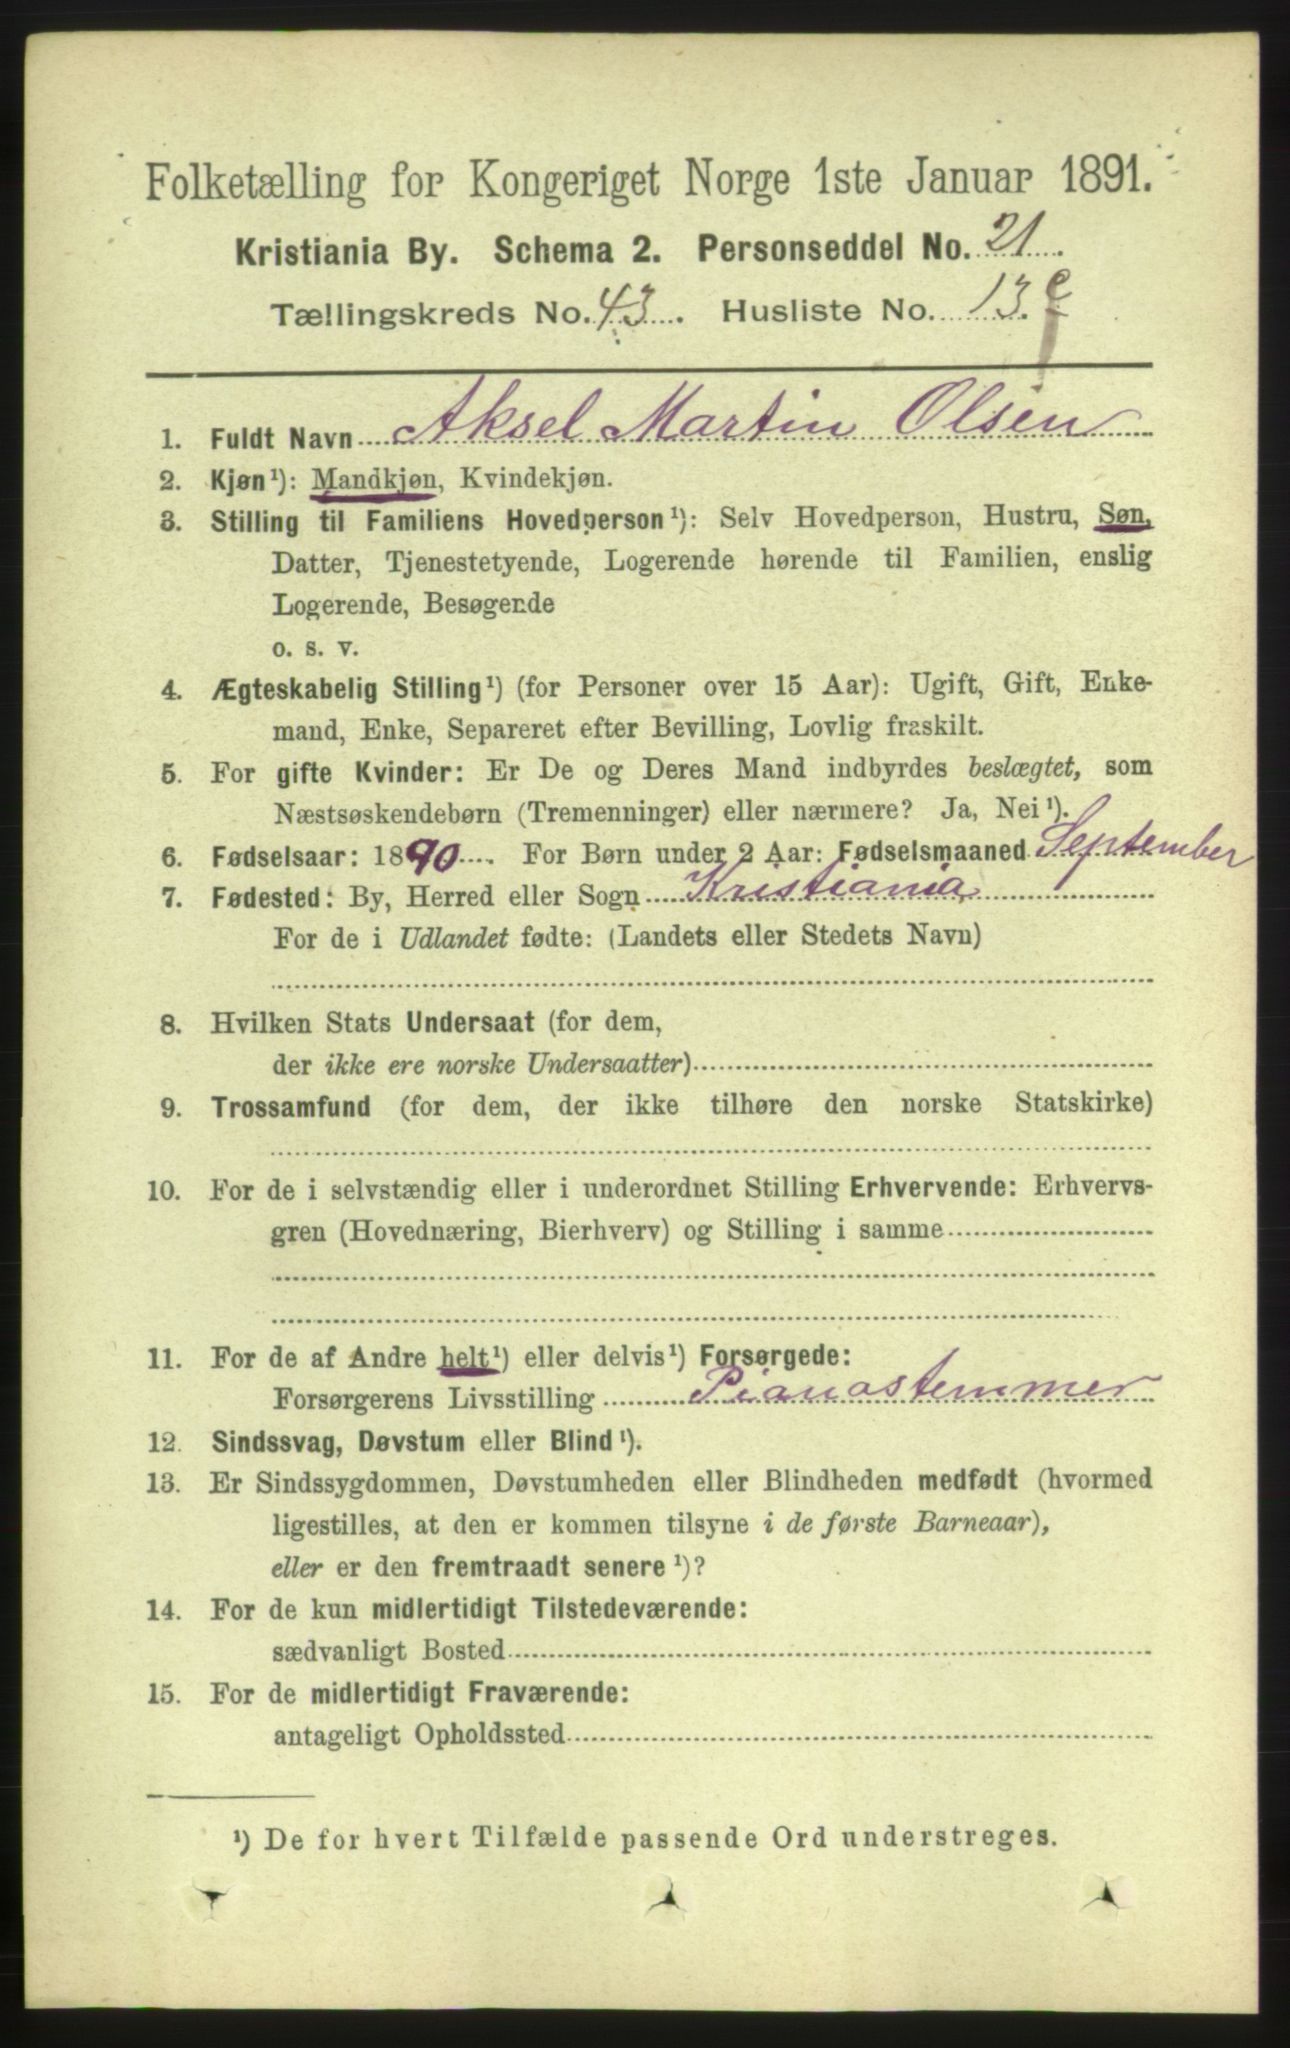 Folketælling for Kongeriget Norge 1ste Januar 1891.
Kristiania By. Schema 2. Personseddel No. 21
Tællingskreds No. 43. Husliste No. 13.
1. Fuldt Navn Aksel Martin Olsen
2. Kjøn¹): Mandkjøn, Kvindekjøn.
3. Stilling til Familiens Hovedperson¹): Selv Hovedperson, Hustru, Søn,
Datter, Tjenestetyende, Logerende hørende til Familien, enslig
Logerende, Besøgende
o. s. v.
4. Ægteskabelig Stilling¹) (for Personer over 15 Aar): Ugift, Gift, Enke-
mand, Enke, Separeret efter Bevilling, Lovlig fraskilt.
5. For gifte Kvinder: Er De og Deres Mand indbyrdes beslægtet, som
Næstsøskendebørn (Tremenninger) eller nærmere? Ja, Nei¹).
6. Fødselsaar: 1890. For Børn under 2 Aar: Fødselsmaaned September
7. Fødested: By, Herred eller Sogn Kristiania
For de i Udlandet fødte: (Landets eller Stedets Navn)
8. Hvilken Stats Undersaat (for dem,
der ikke ere norske Undersaatter)
9. Trossamfund (for dem, der ikke tilhøre den norske Statskirke)
10. For de i selvstændig eller i underordnet Stilling Erhvervende: Erhvervs-
gren (Hovednæring, Bierhverv) og Stilling i samme
11. For de af Andre helt¹) eller delvis¹) Forsørgede:
Forsørgerens Livsstilling Pianostemmer
12. Sindssvag, Døvstum eller Blind¹).
13. Er Sindssygdommen, Døvstumheden eller Blindheden medfødt (hvormed
ligestilles, at den er kommen tilsyne i de første Barneaar),
eller er den fremtraadt senere¹)?
14. For de kun midlertidigt Tilstedeværende:
sædvanligt Bosted
15. For de midlertidigt Fraværende:
antageligt Opholdssted
¹) De for hvert Tilfælde passende Ord understreges.